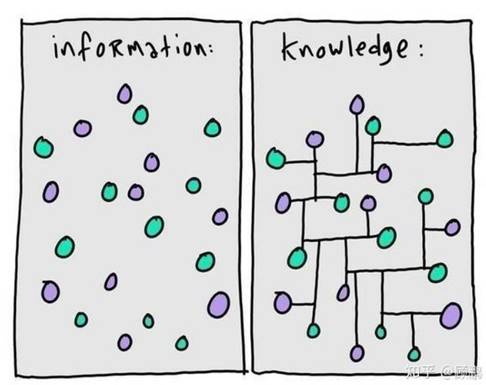 information:
knowledge:
知乎 @顾鹏